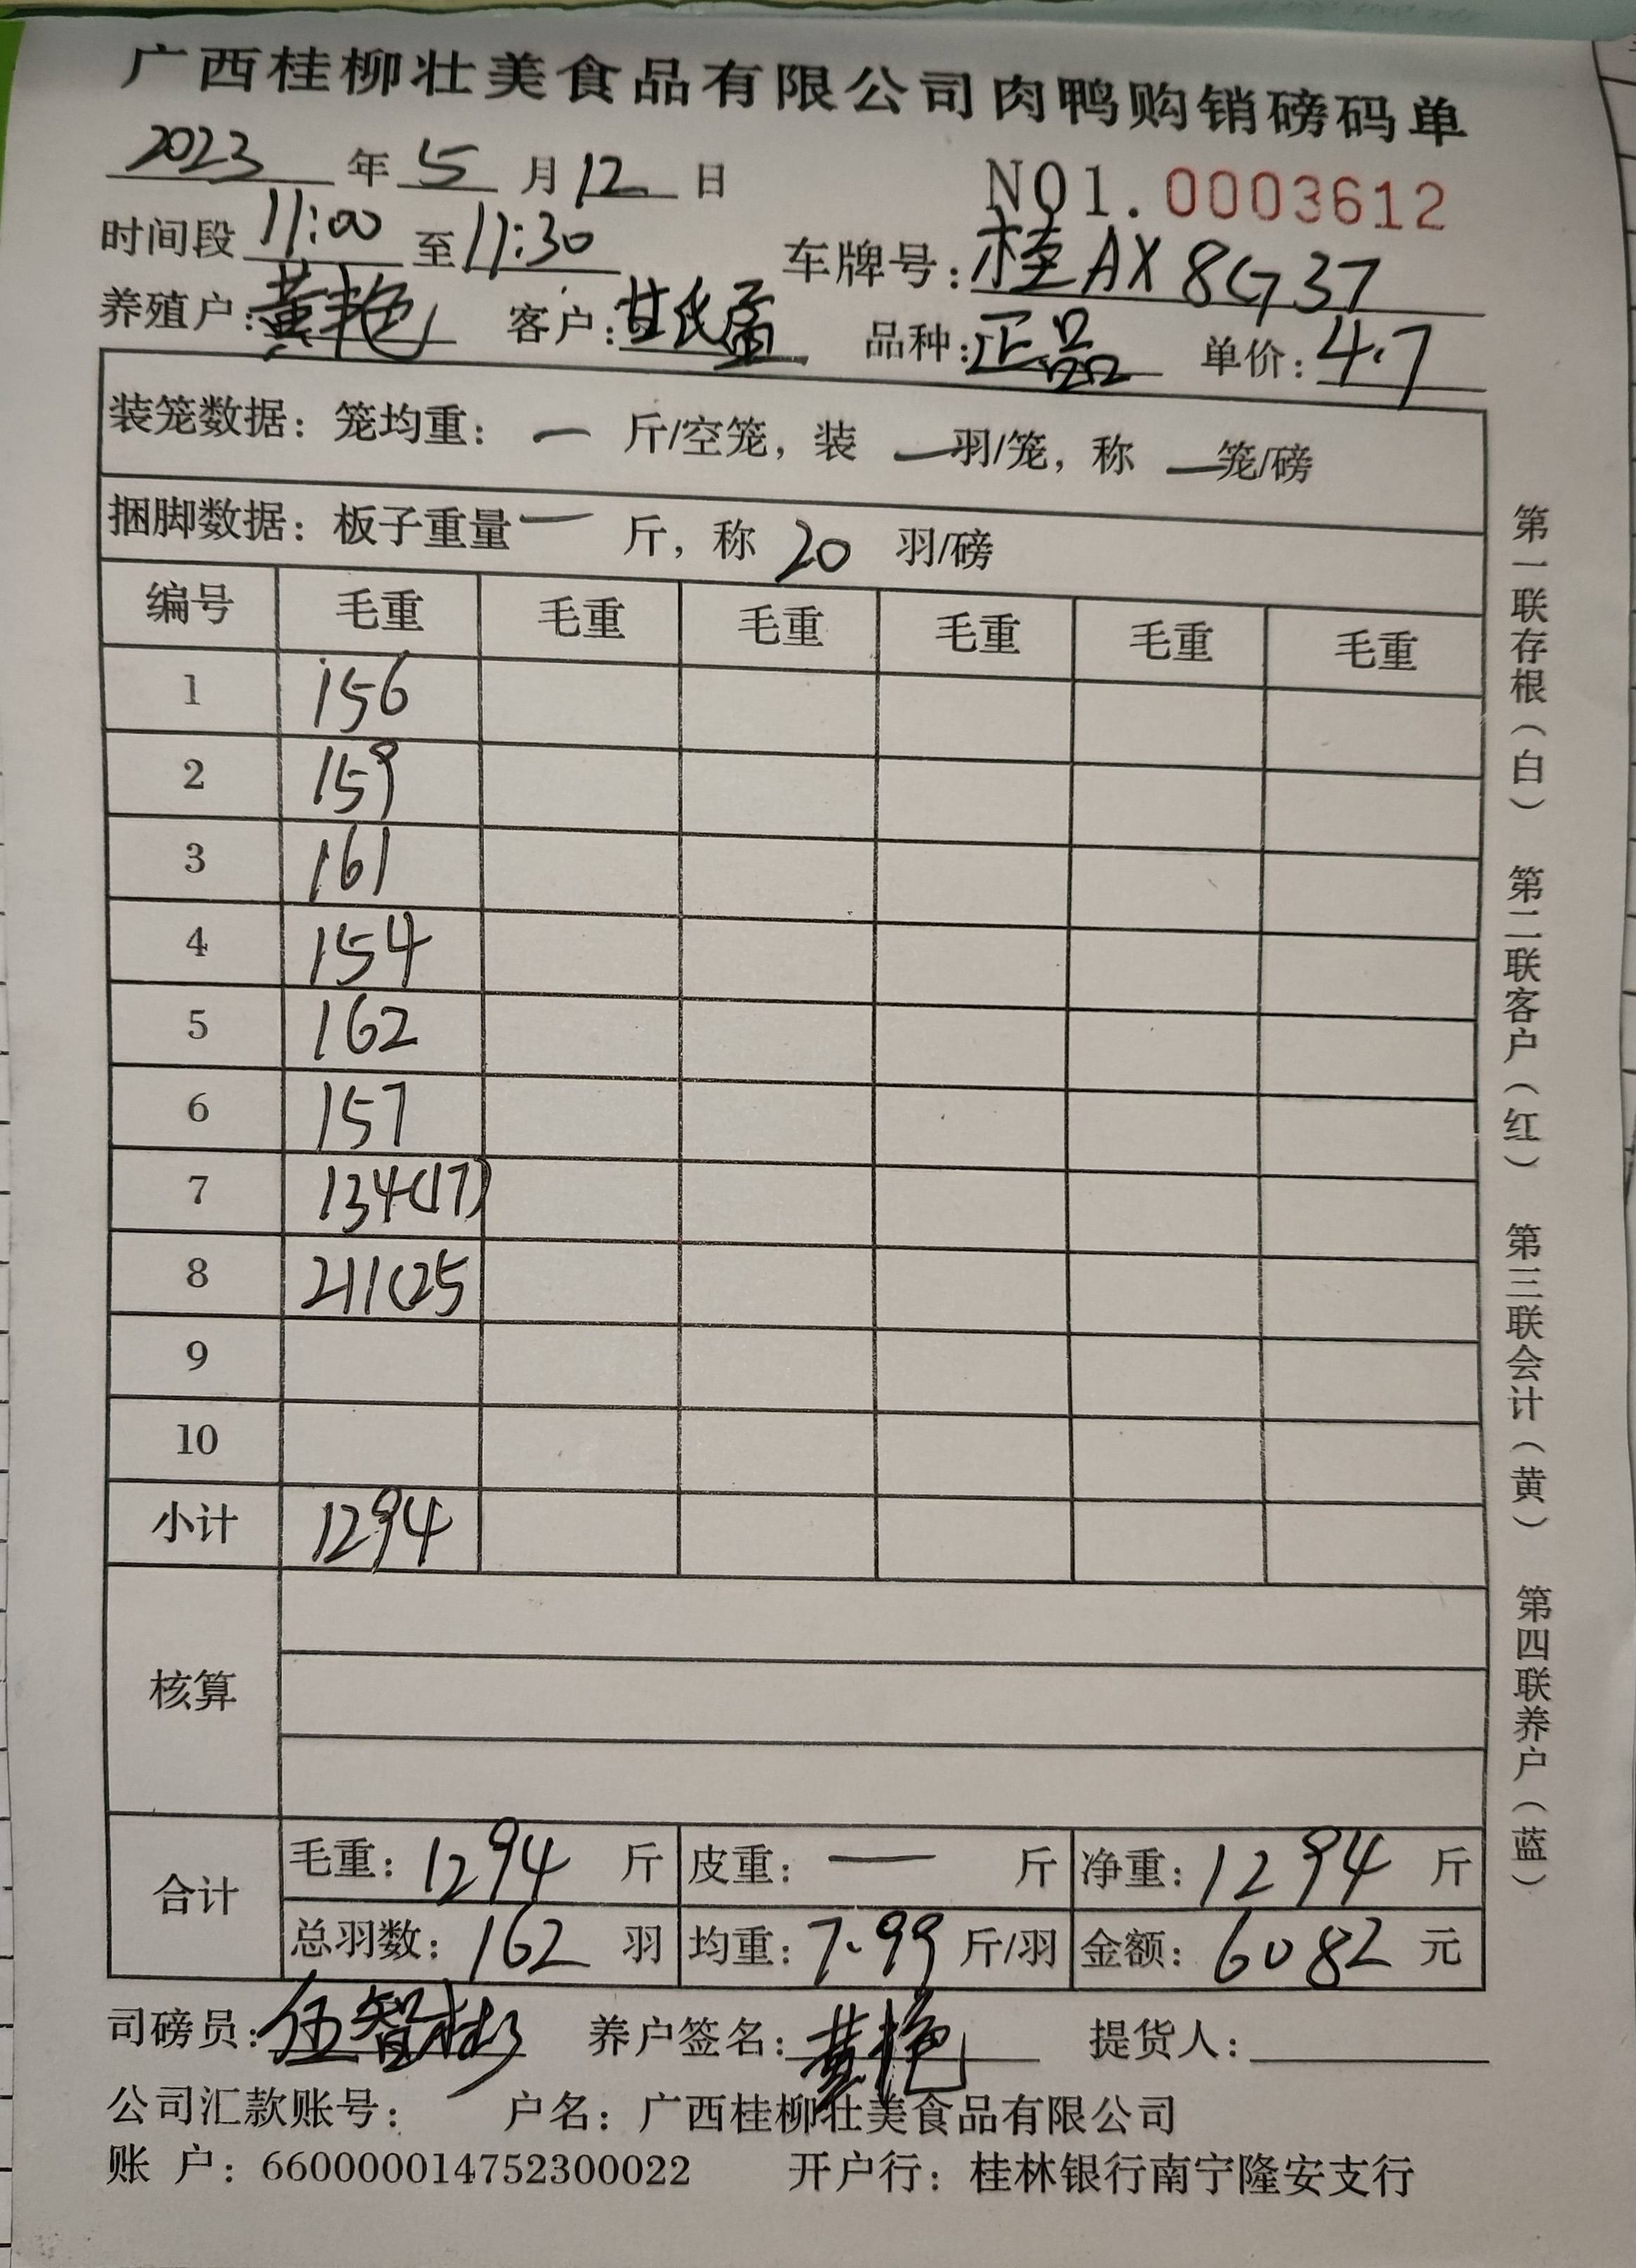 广西桂柳壮美食品有限公司肉鸭购销磅码单
2023 年 5 月 12 日
NO1. 0003612
时间段 11:00 至 11:30 车牌号: 桂AX8G37
养殖户: 黄艳 客户: 甘氏孟 品种: 正品 单价: 4.7
装笼数据: 笼均重: 一 斤/空笼, 装 一 羽/笼, 称 一 笼/磅
捆脚数据: 板子重量 一 斤, 称 20 羽/磅
编号 毛重 毛重 毛重 毛重 毛重 毛重
1 156
2 159
3 161
4 154
5 162
6 157
7 134(17)
8 211(25
9
10
小计 1294
核算
合计 毛重: 1294 斤 皮重: 一 斤 净重: 1294 斤
总羽数: 162 羽 均重: 7.99 斤/羽 金额: 6082 元
司磅员: 伍智彬 养户签名: 黄艳 提货人:
公司汇款账号: 户名: 广西桂柳壮美食品有限公司
账 户: 660000014752300022 开户行: 桂林银行南宁隆安支行
第一联存根(白) 第二联客户(红) 第三联会计(黄) 第四联养户(蓝)